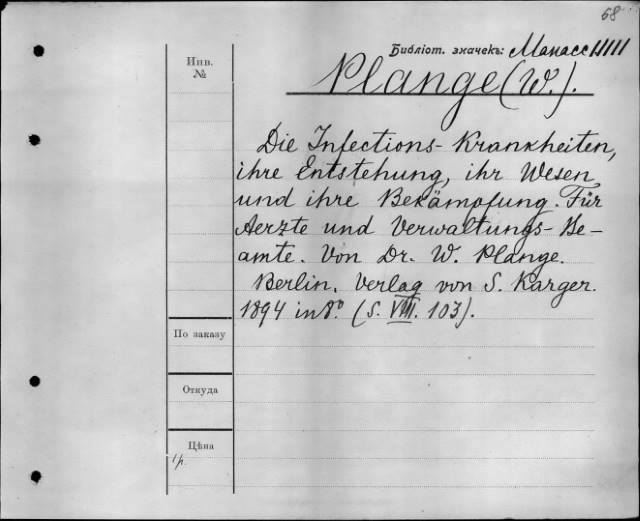 68
Библіот. значекъ:
Инв.
№
Plange (W.).
Die Infections-Krankheiten,
ihre Entstehung, ihr Wesen
und ihre Bekämpfung. Für
Aerzte und Verwaltungs-Be-
amte. Von Dr. W. Plange.
Berlin, Verlag von S. Karger.
1894 in 8.° (S. VIII. 103).
По заказу
Откуда
Цѣна
1 р.